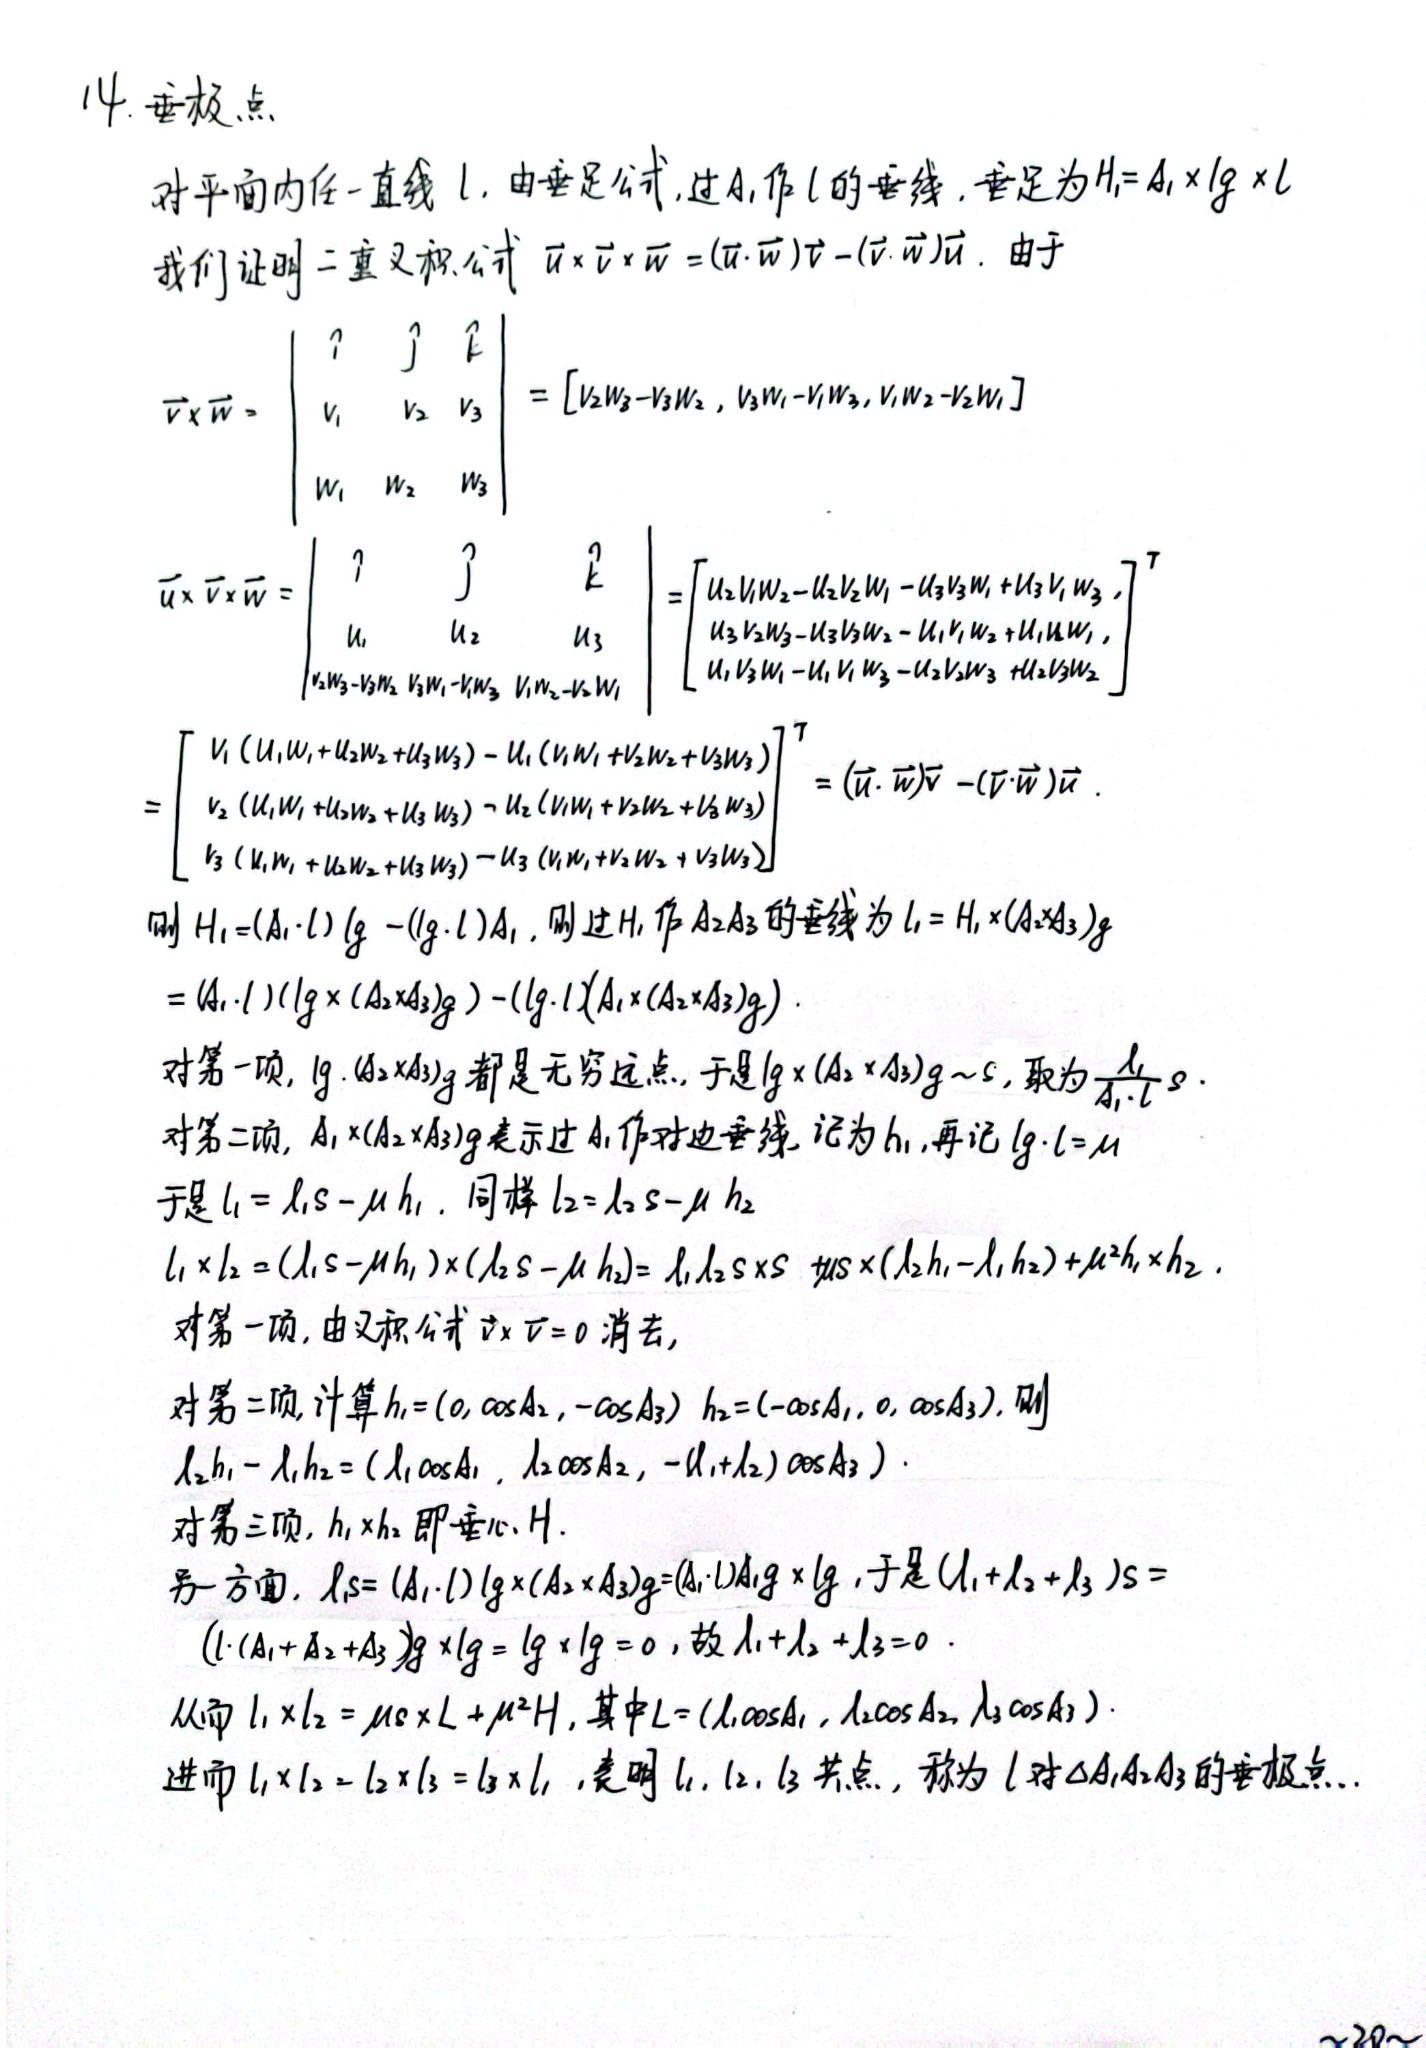 14. 垂极点
对平面内任一直线 l. 由垂足公式,过A₁作l的垂线,垂足为H₁=A₁×lg×l
我们证明二重叉积公式 u⃗×v⃗×w⃗=(u⃗·w⃗)v⃗-(v⃗·w⃗)u⃗. 由于
v⃗×w⃗= | î ĵ k̂ |
| v₁ v₂ v₃ | = [v₂w₃-v₃w₂, v₃w₁-v₁w₃, v₁w₂-v₂w₁]
| w₁ w₂ w₃ |
u⃗×v⃗×w⃗= | î ĵ k̂ | = [u₂v₁w₂-u₂v₂w₁-u₃v₃w₁+u₃v₁w₃, ]ᵀ
| u₁ u₂ u₃ | u₃v₂w₃-u₃v₃w₂-u₁v₁w₂+u₁v₂w₁,
| v₂w₃-v₃w₂ v₃w₁-v₁w₃ v₁w₂-v₂w₁ | u₁v₃w₁-u₁v₁w₃-u₂v₂w₃+u₂v₃w₂
= [ v₁(u₁w₁+u₂w₂+u₃w₃)-u₁(v₁w₁+v₂w₂+v₃w₃) ]ᵀ
v₂(u₁w₁+u₂w₂+u₃w₃)-u₂(v₁w₁+v₂w₂+v₃w₃) = (u⃗·w⃗)v⃗-(v⃗·w⃗)u⃗.
v₃(u₁w₁+u₂w₂+u₃w₃)-u₃(v₁w₁+v₂w₂+v₃w₃)
则H₁=(A₁·l)lg-(lg·l)A₁, 则过H₁作A₂A₃的垂线为l₁=H₁×(A₂×A₃)g
=(A₁·l)(lg×(A₂×A₃)g)-(lg·l)(A₁×(A₂×A₃)g).
对第一项, lg.(A₂×A₃)g都是无穷远点,于是lg×(A₂×A₃)g~s, 取为λ₁/(A₁·l) s.
对第二项, A₁×(A₂×A₃)g表示过A₁作对边垂线,记为h₁,再记lg·l=μ
于是l₁=λ₁s-μh₁. 同样l₂=λ₂s-μh₂
l₁×l₂=(λ₁s-μh₁)×(λ₂s-μh₂)=λ₁λ₂s×s+μs×(λ₂h₁-λ₁h₂)+μ²h₁×h₂.
对第一项,由叉积公式v⃗×v⃗=0消去,
对第二项,计算h₁=(0, cosA₂, -cosA₃) h₂=(-cosA₁, 0, cosA₃), 则
λ₂h₁-λ₁h₂=(λ₁cosA₁, λ₂cosA₂, -(λ₁+λ₂)cosA₃).
对第三项, h₁×h₂即垂心H.
另一方面, λ₁s=(A₁·l)lg×(A₂×A₃)g=(A₁·l)A₁g×lg, 于是(λ₁+λ₂+λ₃)s=
(l·(A₁+A₂+A₃))g×lg=lg×lg=0, 故λ₁+λ₂+λ₃=0.
从而l₁×l₂=μs×L+μ²H, 其中L=(λ₁cosA₁, λ₂cosA₂, λ₃cosA₃).
进而l₁×l₂=l₂×l₃=l₃×l₁, 表明l₁, l₂, l₃共点, 称为l对△A₁A₂A₃的垂极点..
~38~